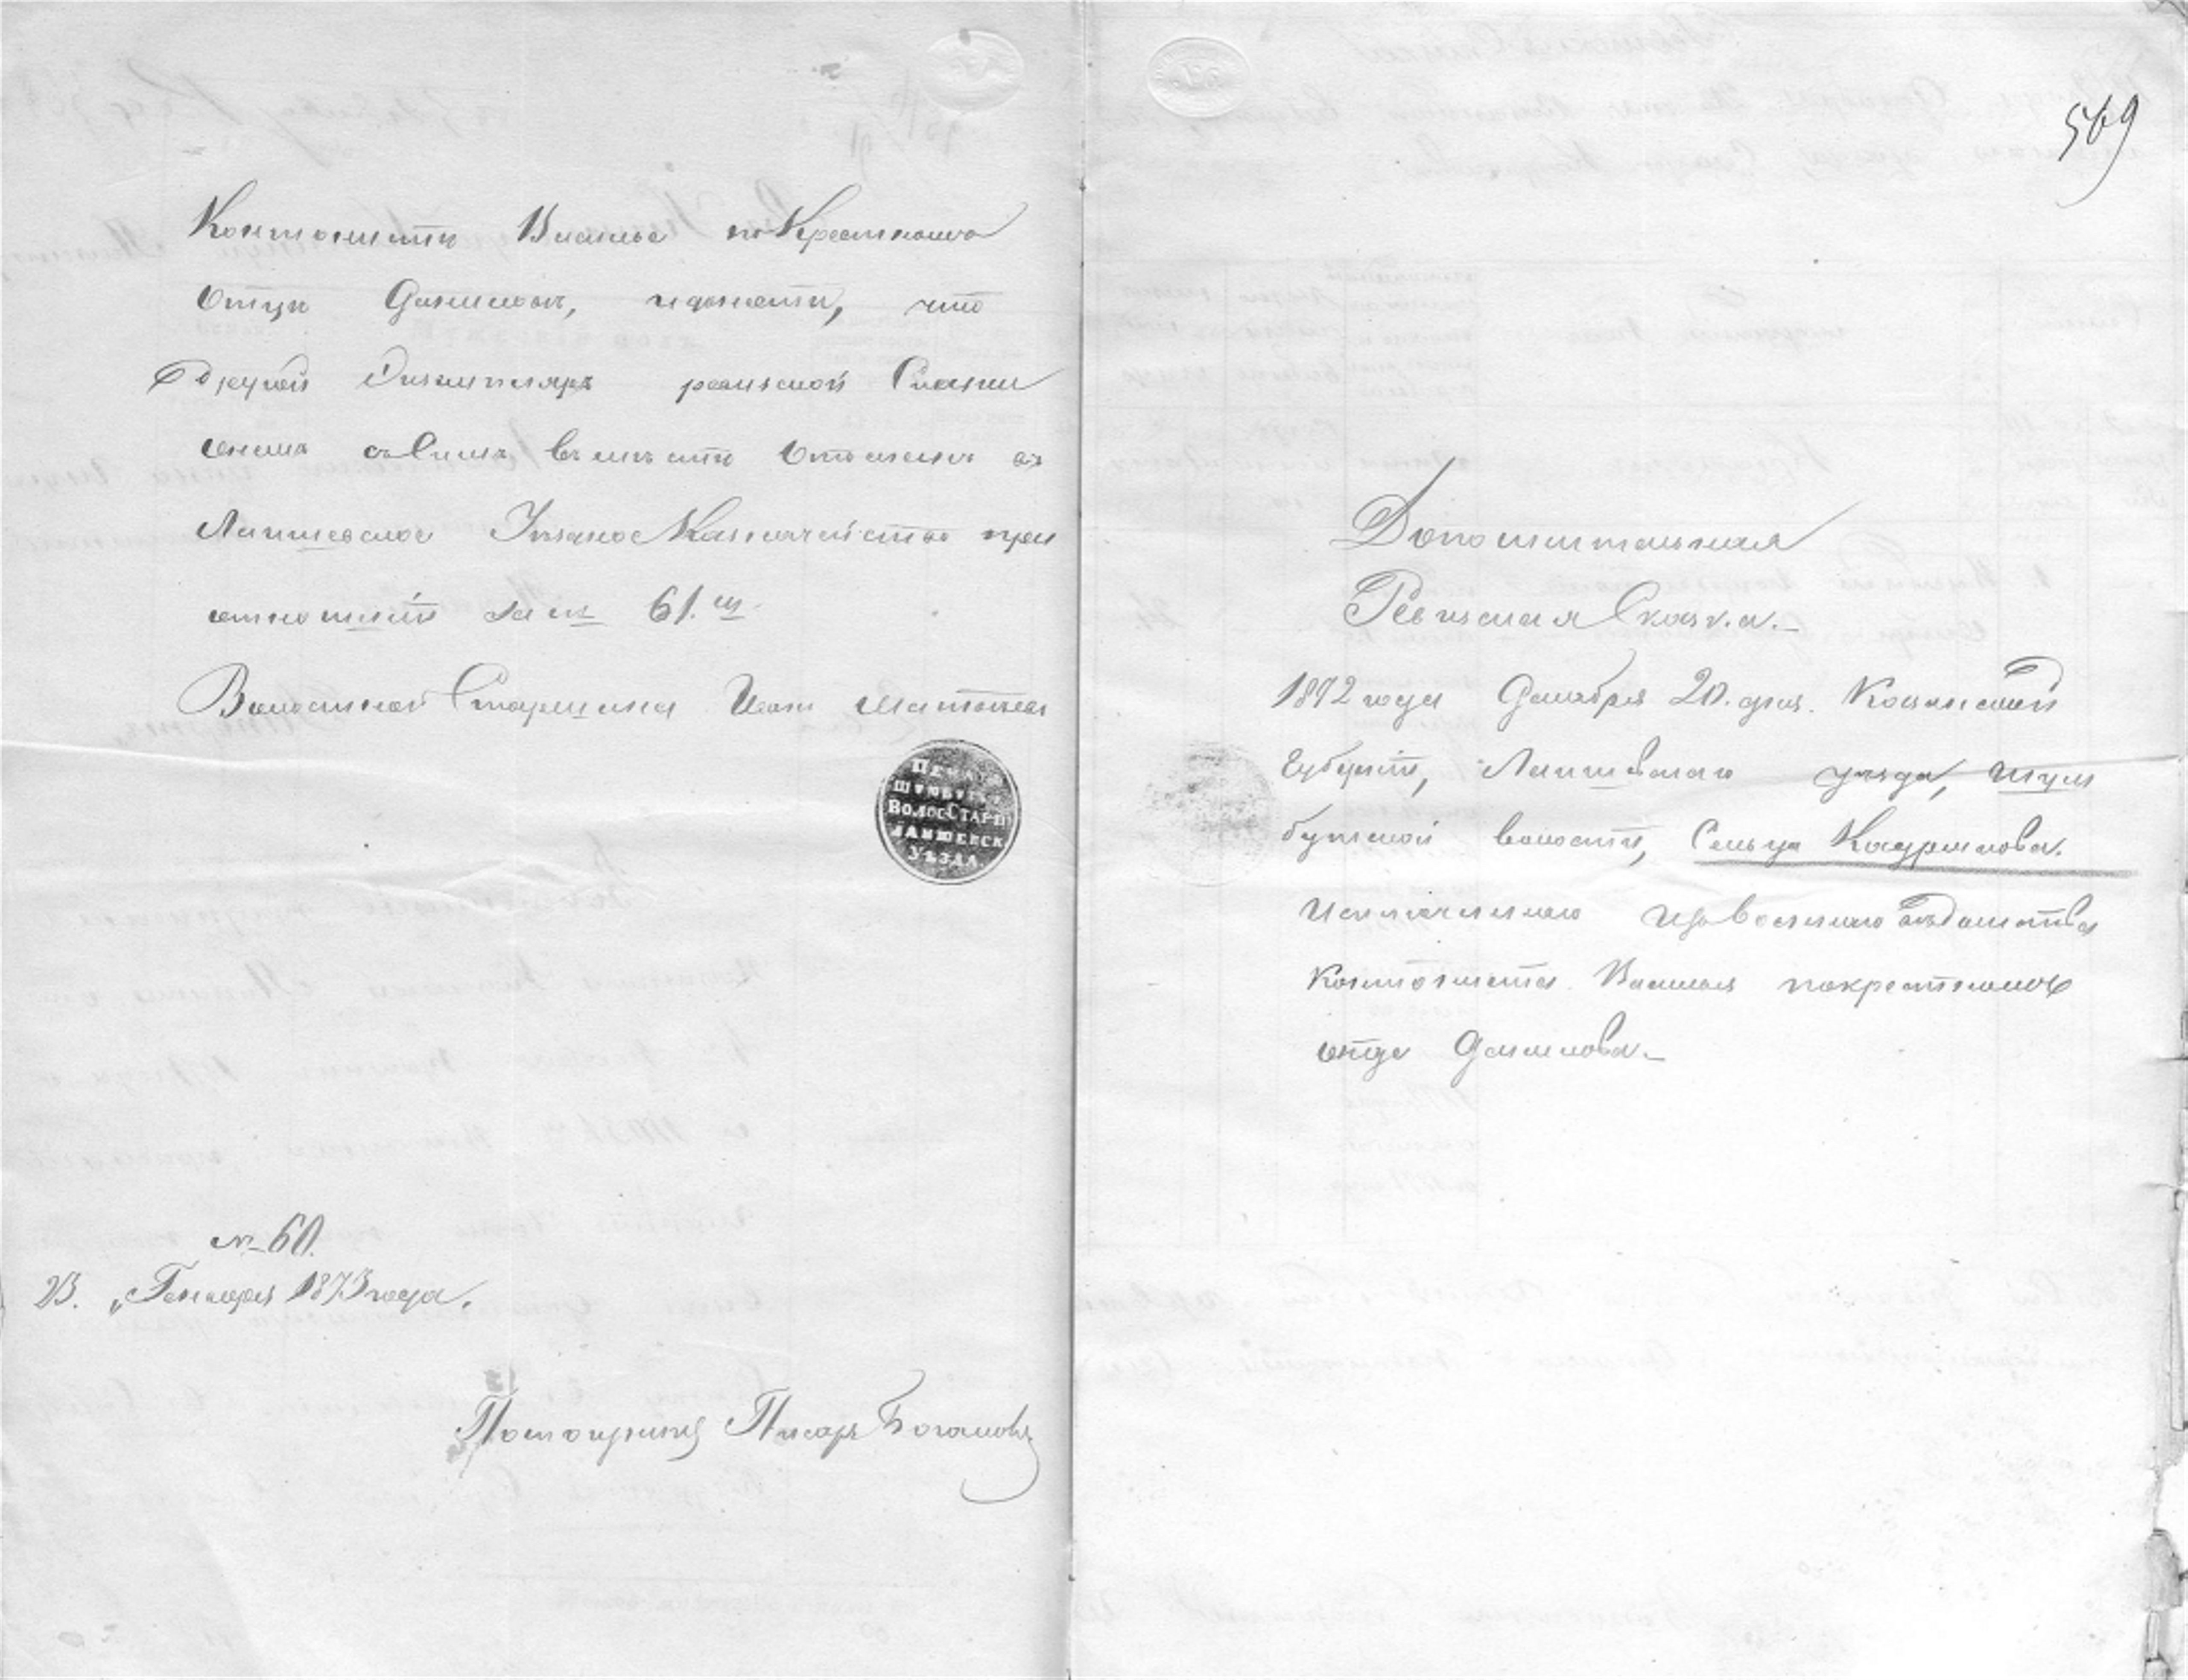 Кантонистѣ Василье по Крестному
Отцу Данилов, и донести, что
другой Экземпляръ ревизской Сказки
онемъ съ Симъ вместѣ Отосланъ въ
Лаишевское Уѣздное Казначейство при
отношеніи за № 61.м
Волостной Старшина
ПЕЧА
ВОЛОС СТАРШ
ЛАИШЕВСК
УѢЗДА.
№ 60.
23. Генваря 1873 года.
Писарь
569
Дополнительная
Ревизская Сказка.
1872 года Декабря 20. дня. Казанской
Губерніи, Лаишевскаго уѣзда, Шум
бутской волости, Сельца
Исключеннаго изъ Военнаго вѣдомства
Кантониста Василья по крестному
отцу Данилова.